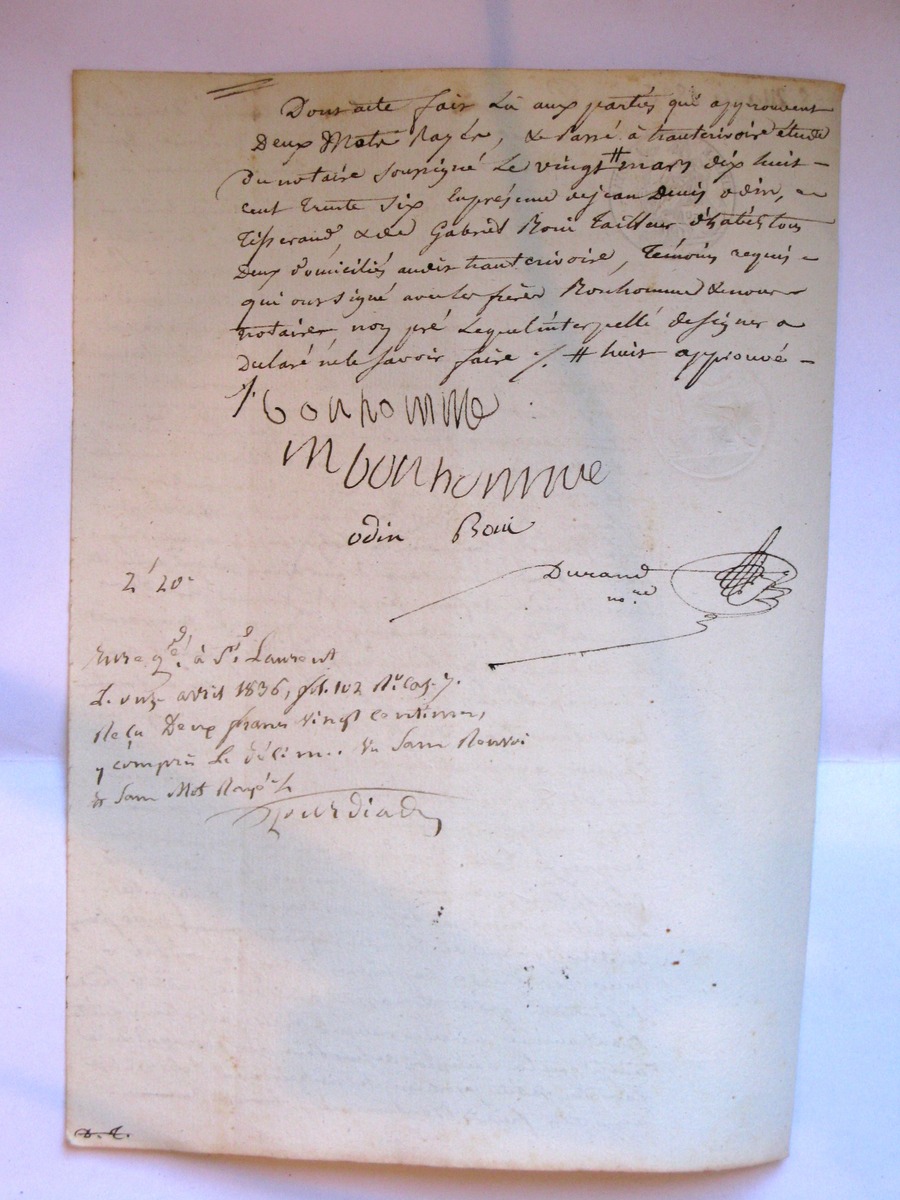 Dont acte fait Lu aux partiés qui approuvent
Deux Mots Rayés, & Passé à hauterivoire étude
Du notaire soussigné Le vingt # mars dix huit -
cent trente six En présence de jean Denis odin,
Tisserand, & de Gabriel Boui Tailleur d'habits tous
Deux domiciliés audit hauterivoire, Témoins requis -
qui ont signé avec les frères Bonhomme & nous -
notaire non pré Lequel interpellé de signer a
Déclaré ne le savoir faire ./. # huit approuvé -
bonhomme
m bonhomme
odin Boui
2f 20c
Durand
no.re
Enregé. à St. Laurent
L. onze avril 1836, fol. 102 Ro. Cas. 7.
Reçu Deux francs vingt centimes,
y compris Le décime. Sans Renvoi
& Sans Mot Rayé
D. L.